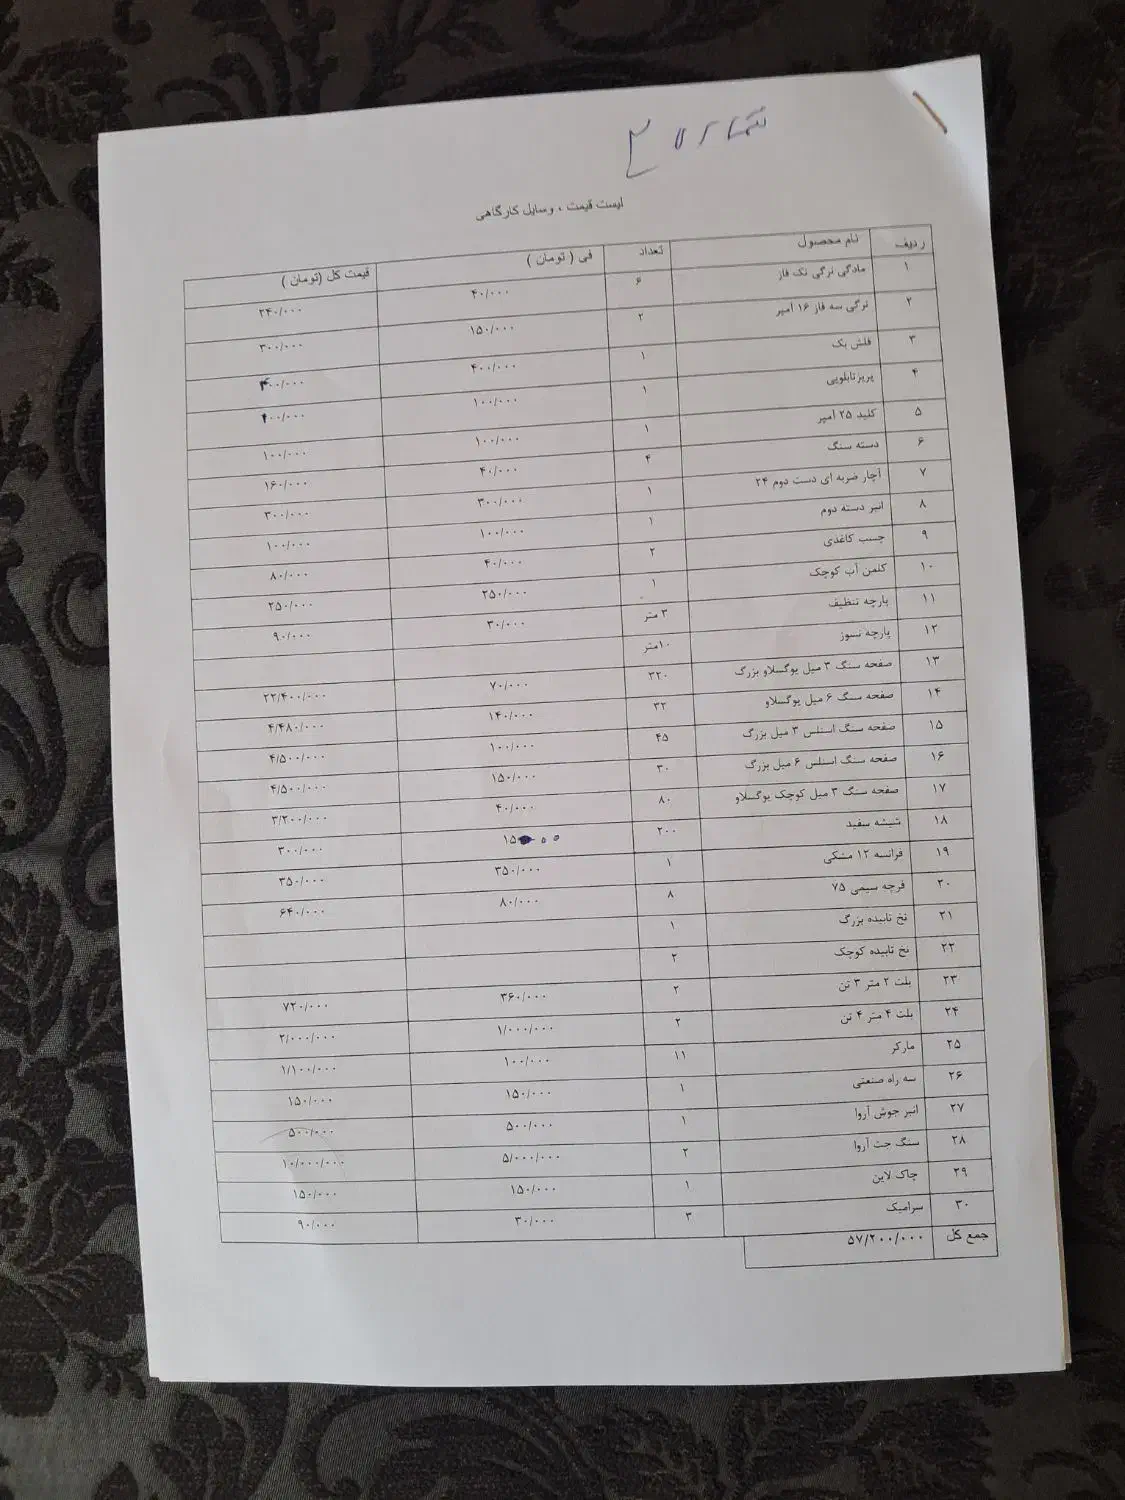 شماره ۲
لیست قیمت ، وسایل کارگاهی
ردیف نام محصول تعداد فی ( تومان ) قیمت کل (تومان )
۱ مادگی نرگی تک فاز ۶ ۴۰/۰۰۰ ۲۴۰/۰۰۰
۲ نرگی سه فاز ۱۶ آمپر ۲ ۱۵۰/۰۰۰ ۳۰۰/۰۰۰
۳ فلش بک ۱ ۴۰۰/۰۰۰ ۴۰۰/۰۰۰
۴ پریزتابلویی ۱ ۱۰۰/۰۰۰ ۱۰۰/۰۰۰
۵ کلید ۲۵ آمپر ۱ ۱۰۰/۰۰۰ ۱۰۰/۰۰۰
۶ دسته سنگ ۴ ۴۰/۰۰۰ ۱۶۰/۰۰۰
۷ آچار ضربه ای دست دوم ۲۴ ۱ ۳۰۰/۰۰۰ ۳۰۰/۰۰۰
۸ انبر دسته دوم ۱ ۱۰۰/۰۰۰ ۱۰۰/۰۰۰
۹ چسب کاغذی ۲ ۴۰/۰۰۰ ۸۰/۰۰۰
۱۰ کلمن آب کوچک ۱ ۲۵۰/۰۰۰ ۲۵۰/۰۰۰
۱۱ پارچه تنظیف ۳ متر ۳۰/۰۰۰ ۹۰/۰۰۰
۱۲ پارچه نسوز ۱۰متر
۱۳ صفحه سنگ ۳ میل یوگسلاو بزرگ ۳۲۰ ۷۰/۰۰۰ ۲۲/۴۰۰/۰۰۰
۱۴ صفحه سنگ ۶ میل یوگسلاو ۳۲ ۱۴۰/۰۰۰ ۴/۴۸۰/۰۰۰
۱۵ صفحه سنگ استلس ۳ میل بزرگ ۴۵ ۱۰۰/۰۰۰ ۴/۵۰۰/۰۰۰
۱۶ صفحه سنگ استلس ۶ میل بزرگ ۳۰ ۱۵۰/۰۰۰ ۴/۵۰۰/۰۰۰
۱۷ صفحه سنگ ۳ میل کوچک یوگسلاو ۸۰ ۴۰/۰۰۰ ۳/۲۰۰/۰۰۰
۱۸ شیشه سفید ۲۰۰ ۳۰۰/۰۰۰
۱۹ فرانسه ۱۲ مشکی ۱ ۳۵۰/۰۰۰ ۳۵۰/۰۰۰
۲۰ فرچه سیمی ۷۵ ۸ ۸۰/۰۰۰ ۶۴۰/۰۰۰
۲۱ نخ تابیده بزرگ ۱
۲۲ نخ تابیده کوچک ۲
۲۳ بلت ۲ متر ۳ تن ۲ ۳۶۰/۰۰۰ ۷۲۰/۰۰۰
۲۴ بلت ۴ متر ۴ تن ۲ ۱/۰۰۰/۰۰۰ ۲/۰۰۰/۰۰۰
۲۵ مارکر ۱۱ ۱۰۰/۰۰۰ ۱/۱۰۰/۰۰۰
۲۶ سه راه صنعتی ۱ ۱۵۰/۰۰۰ ۱۵۰/۰۰۰
۲۷ انبر جوش آروا ۱ ۵۰۰/۰۰۰ ۵۰۰/۰۰۰
۲۸ سنگ جت آروا ۲ ۵/۰۰۰/۰۰۰ ۱۰/۰۰۰/۰۰۰
۲۹ چاک لاین ۱ ۱۵۰/۰۰۰ ۱۵۰/۰۰۰
۳۰ سرامیک ۳ ۳۰/۰۰۰ ۹۰/۰۰۰
جمع کل ۵۷/۲۰۰/۰۰۰